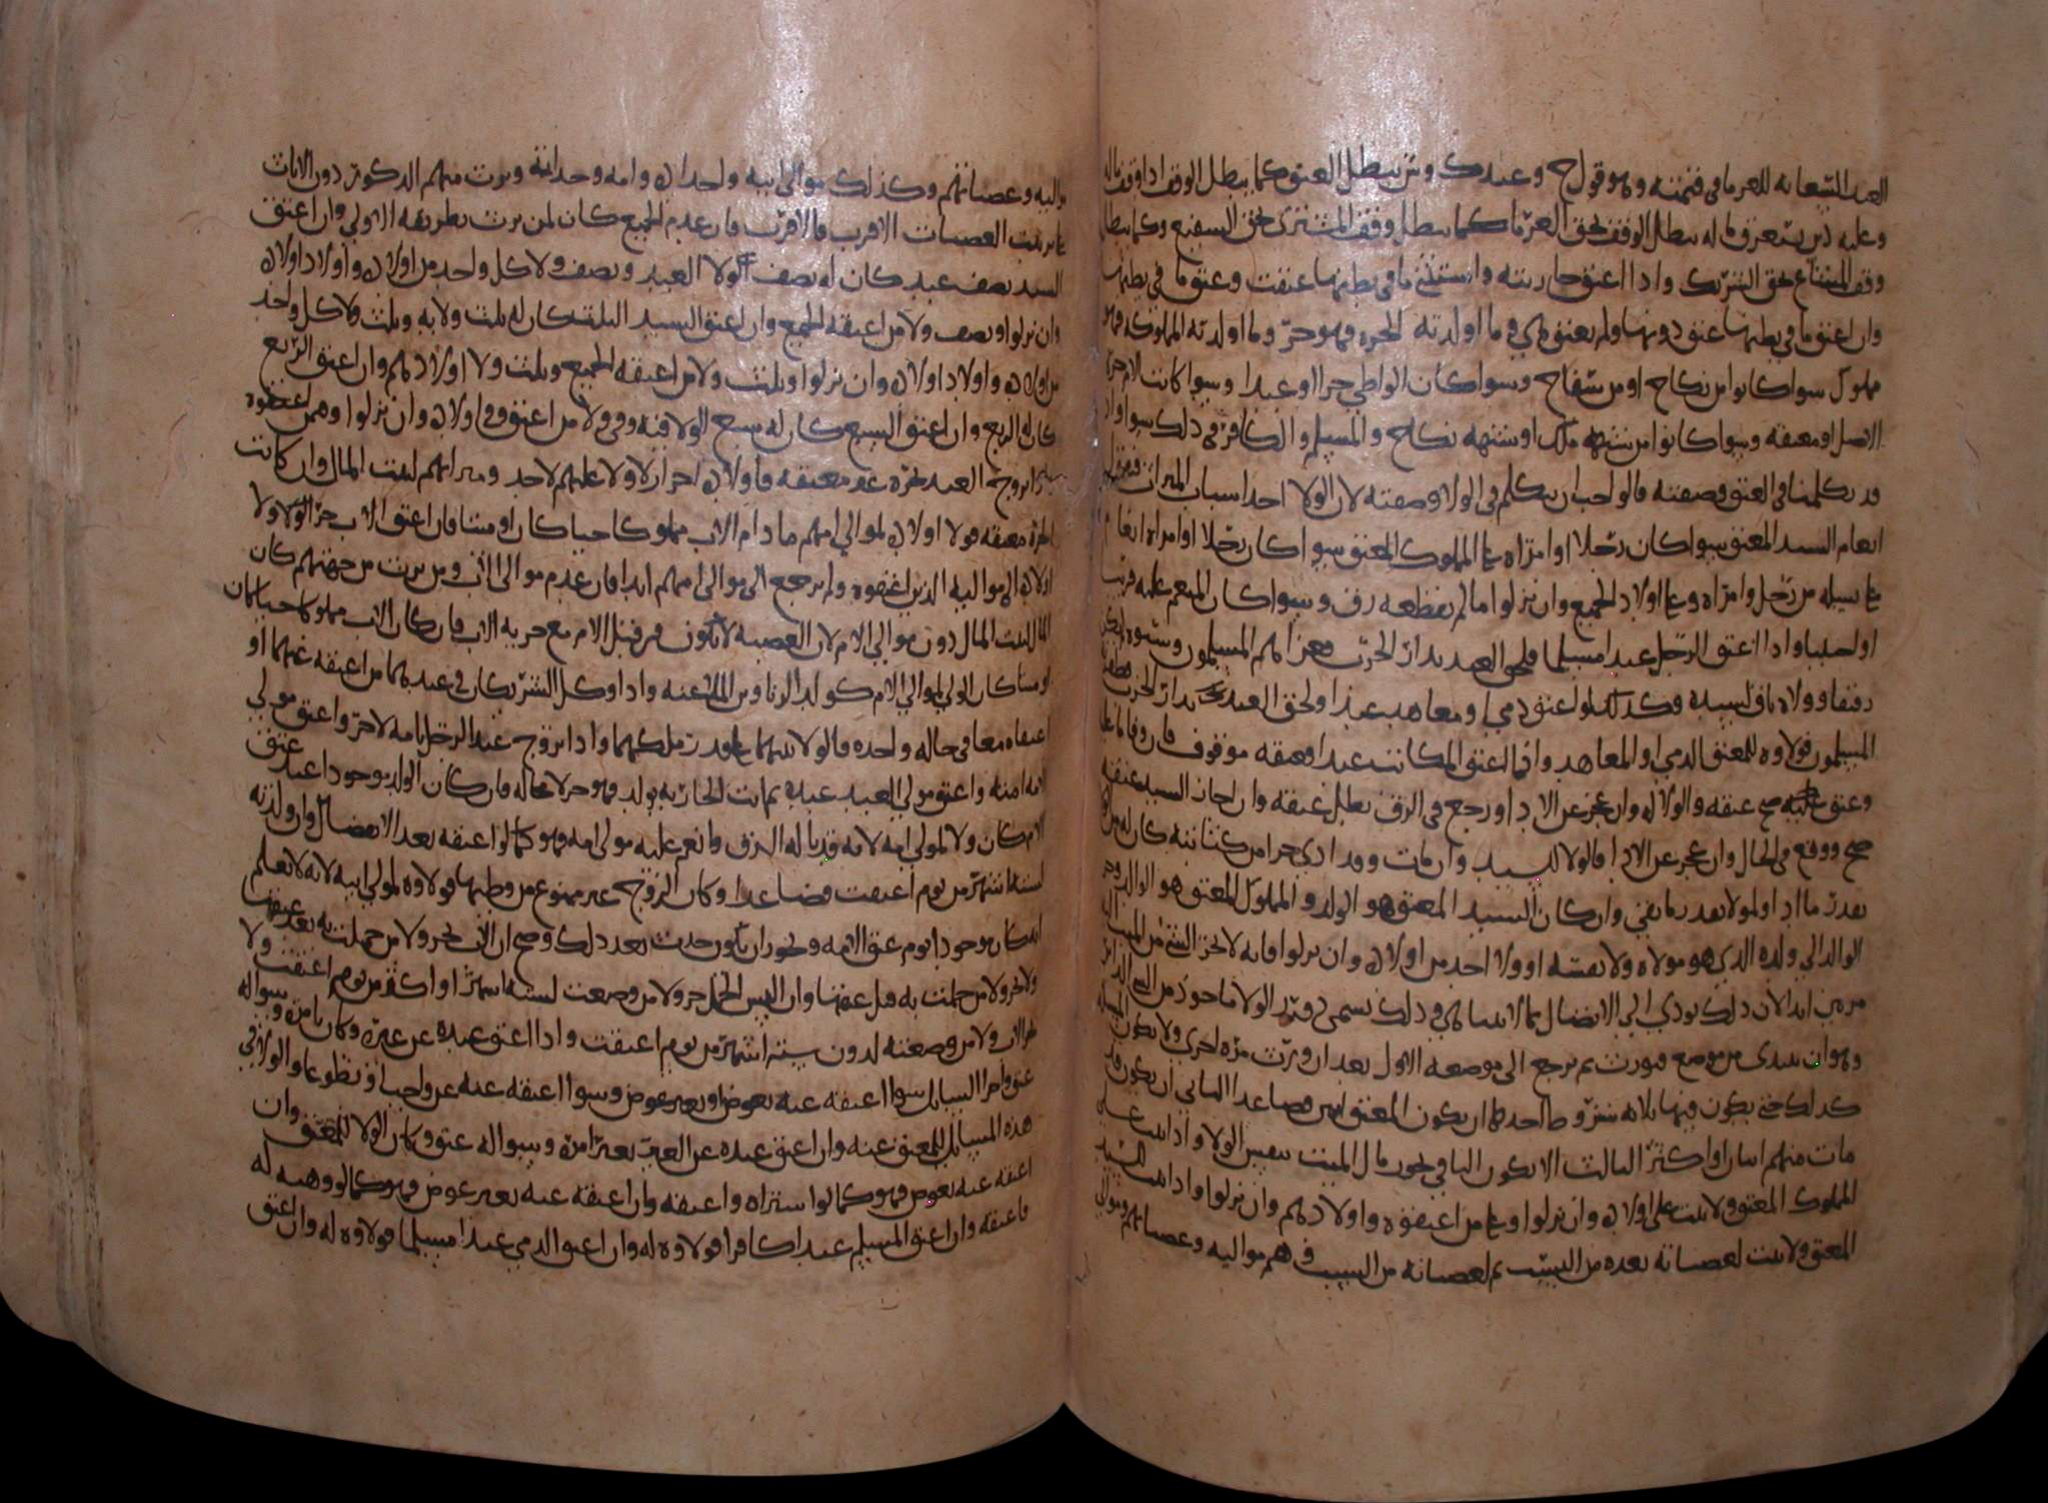 العبد السعايه للغرما في قيمته وهو قول ح وعند ك و ش يبطل العتق كما يبطل الوقف اذا وقف ماله
وعليه دين يستغرق ماله يبطل الوقف لحق الغرما كما يبطل وقف المشتري لحق الشفيع وكما يبطل
وقف المشاع لحق الشريك واذا اعتق جاريته واستثنى ما في بطنها عتقت وعتق ما في بطنها
وان اعتق ما في بطنها عتق دونها ولم يعتق هي وما اولدته الحره فهو حر وما اولدته المملوكه فهو
مملوك سوا كانوا من نكاح او من سفاح وسوا كان الواطي حرا او عبدا وسوا كانت الام حره
الاصل او معتقه وسوا كانوا من شبهه ملك او شبهه نكاح والمسلم والكافر في ذلك سوا واذ
قد تكلمنا في العتق وصفته فالواجب ان نتكلم في الولا وصفته لان الولا احد اسباب الميراث
انعام السيد المعتق سوا كان رجلا او امراه على المملوك المعتق سوا كان رجلا او امراه انعام
على نسله من رجل وامراه وعلى اولاد الجميع وان نزلوا ما لم يقطعه رق وسوا كان المنعم عليه قريبا
او اجنبيا واذا اعتق الرجل عبدا مسلما فلحق العبد بدار الحرب فغزاهم المسلمون وسبوه
رقيقا وولاه باق لسيده وكذلك لو اعتق ذمي او معاهد عبدا ولحق العبد بدار الحرب
المسلمون فولاوه للمعتق الذمي او المعاهد واذا اعتق المكاتب عبدا فعتقه موقوف فان وفا ما عليه
وعتق صح عتقه والولا له وان عجز عن الادا ورجع في الرق بطل عتقه وان اجاز السيد عتقه
صح ووقع في الحال وان عجز عن الادا فالولا للسيد وان مات وقد ادى جزا من كتابته كان له من الولا
بقدر ما ادا ولمولاه بقدر ما بقي وان كان السيد المعتق هو الولد والمملوك المعتق هو الوالد
الوالد الى ولده الذي هو مولاه ولا نفسه او ولا احد من اولاده وان نزلوا فانه لا
ابدا لان ذلك يودي الى الاتصال بما لا يتناهي وذلك يسمى دور الولا ماخوذ من
وهو ان يبتدى من موضع فيورث ثم يرجع الى موضعه الاول بعد ان ورث مره اخرى ولا يكون
كذلك حتى يكون فيها ثلاثه شروط احدها ان يكون المعتق اثنين فصاعدا الثاني ان يكون قد
مات منهم اثنان او اكثر الثالث الا يكون الباقي يحوز مال الميت بنفس الولا واذا ثبت على
المملوك المعتق ولا ثبت على اولاده وان نزلوا وعلى من اعتقوه واولادهم وان نزلوا واذا ثبت للسيد
المعتق ولا ثبت لعصباته بعده من النسب ثم لعصباته من السبب وهم مواليه وعصباتهم وموالي
مواليه وعصباتهم وكذلك موالي ابيه واجداده وامه وجداته ويرث منهم الذكور دون الاناث
على ترتيب العصبات الاقرب فالاقرب فان عدم الجميع كان لمن يرث بطريقه الاولى وان اعتق
السيد نصف عبد كان له نصف الولا العبد ونصف ولا كل واحد من اولاده واولاد اولاده
وان نزلوا ونصف ولا من اعتقه الجميع وان اعتق السيد الثلث كان له ثلث ولايه وثلث ولا كل واحد
من اولاده واولاد اولاده وان نزلوا وثلث ولا من اعتقه الجميع وثلث ولا اولادهم وان اعتق الربع
كان له الربع وان اعتق السبع كان له سبع الولا فيه وفي ولا من اعتق وفي اولاده وان نزلوا وفيمن اعتقوه
تزوج العبد بحره غير معتقه فاولاده احرار لا ولا عليهم لاحد وميراثهم لبيت المال وان كانت
الحره معتقه فولا اولاده لموالي امهم ما دام الاب مملوكا حيا كان او ميتا فان اعتق الاب جر الولا ولا
اولاده الى مواليه الذين اعتقوه ولم يرجع الى موالي امهم ابدا فان عدم موالي الاب ومن يرث من جهتهم كان
المال لبيت المال دون موالي الام لان العصبه لا تكون من قبل الام مع حريه الاب فان كان الاب مملوكا حيا كان
او ميتا كان الولي لموالي الام كولد الزنا وبن الملاعنه واذا وكل الشريكان في عبدهما من اعتقه عنهما او
اعتقاه معا في حاله واحده فالولا بينهما على قدر ملكهما واذا تزوج عبد الرجل بامه لاخر واعتق مولى
الامه امته واعتق مولى العبد عبده ثم اتت الجاريه بولد فهو حر لا محاله فان كان الولد موجودا عند عتق
الام كان ولا لمولى امه لانه قد ناله الرق فانعم عليه مولى امه فهو كما لو اعتقه بعد الانفصال وان ولدته
لسته اشهر من يوم اعتقت فصاعدا وكان الزوج غير ممنوع من وطيها فولاوه لمولى ابيه لانه لا نعلم
انه كان موجودا يوم عتق الامه ويجوز ان يكون حدث بعد ذلك وصح ان الاب يجر ولا من حملت به بعد عتقها
ولا يجر ولا من حملت به قبل عتقها وان التبس الحمل جر ولا من وضعت لسته اشهر او اكثر من يوم اعتقت ولا
يجر الاب ولا من وضعته لدون سته اشهر من يوم اعتقت واذا اعتق عبده عن غيره وكان بامره وسواله
عتق وا السايل سوا اعتقه عنه بعوض او بغير عوض وسوا اعتقه عنه عن واجب او تطوعا والولا في
هذه المسايل للمعتق عنه وان اعتق عبده عن الغير بغير امره وسواله عتق وكان الولا للمعتق وان
اعتقه عنه بعوض فهو كما لو اشتراه واعتقه وان اعتقه عنه بغير عوض فهو كما لو وهبه له
فاعتقه وان اعتق المسلم عبدا كافرا فولاوه له وان اعتق الذمي عبدا مسلما فولاوه له وان اعتق